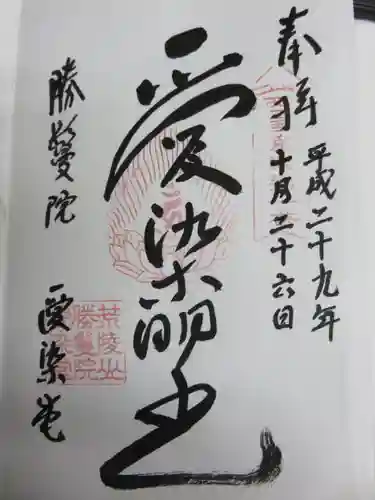 奉拝
平成二十九年
十月二十六日
愛染明王
勝鬘院
愛染堂
荒陵山
勝鬘院